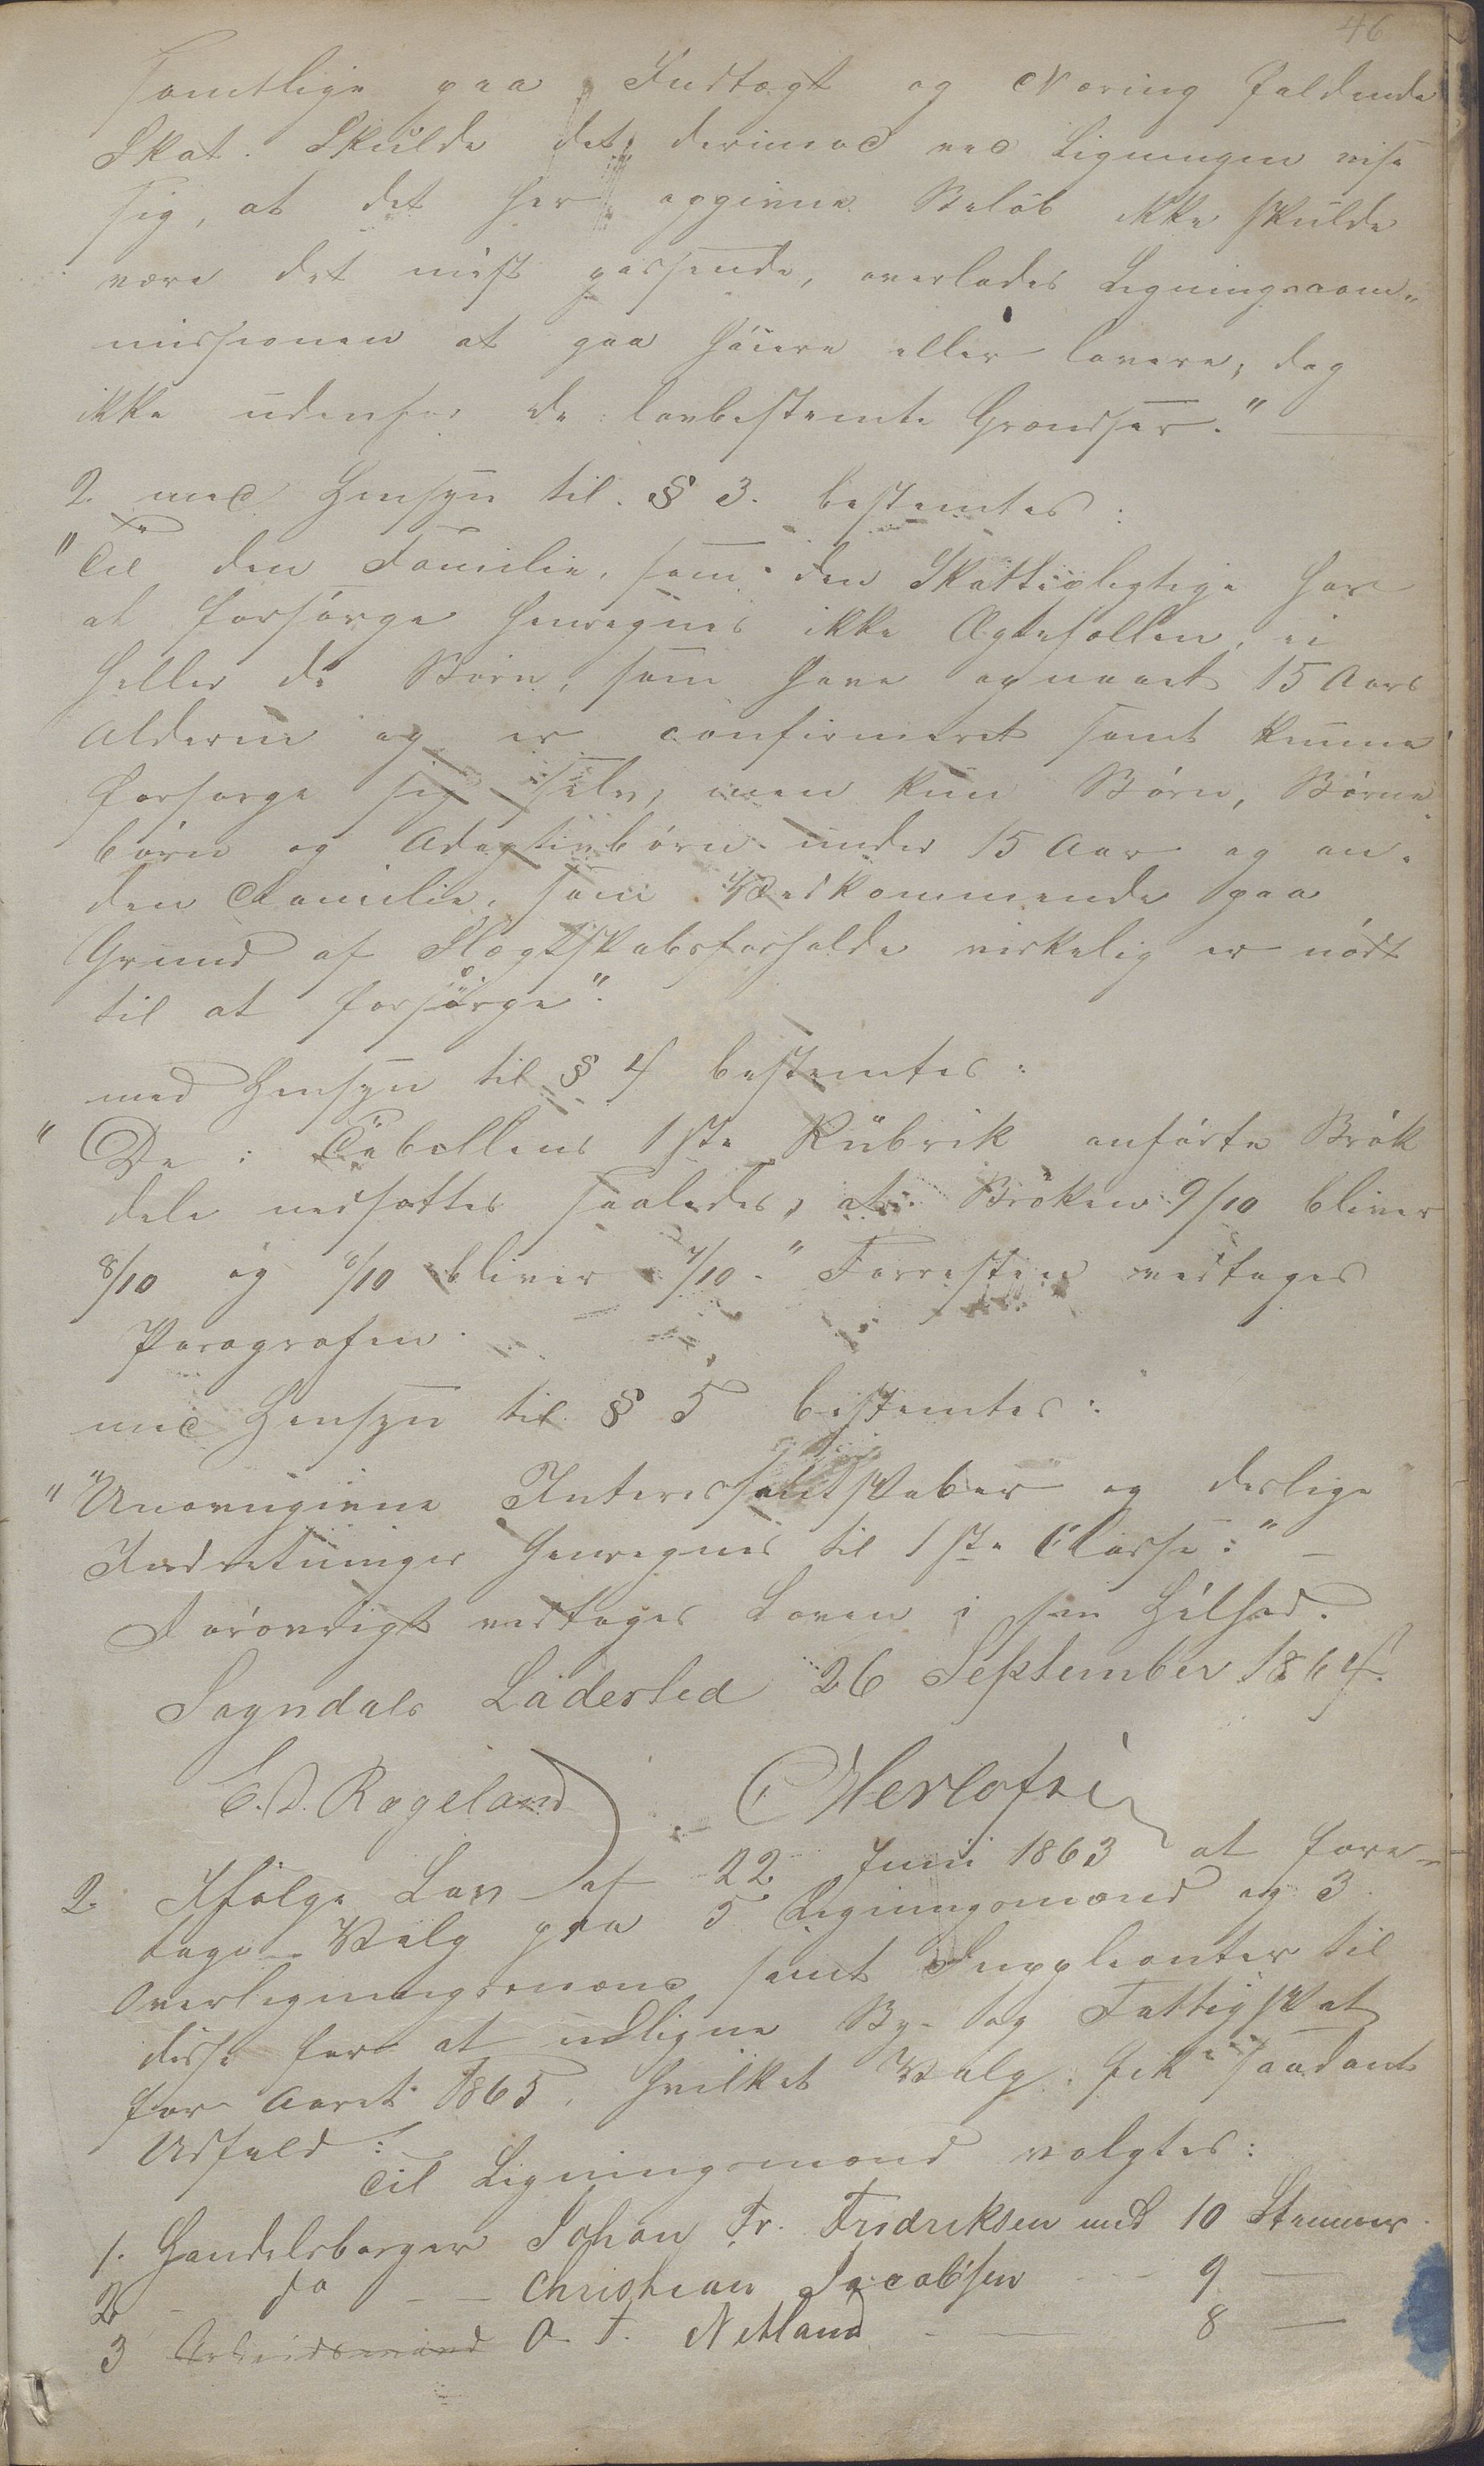 46
samtlige paa Indtægt og Næring faldende
Skat. Skulde det derimod ved Ligningen vise
sig, at det her opgivne Beløb ikke skulde
være det mest passende, overlades Ligningscom-
missionen at gaa høiere eller lavere, dog
ikke udenfor de lovbestemte Grændser."
2. med Hensyn til § 3. bestemtes:
"Til den Familie, som den Skattepligtige har
at forsørge henregnes ikke Ægtefællen, ei
heller de Børn, som have opnaaet 15 Aars
Alderen og er confirmeret samt kunne
forsørge sig selv, men kun Børn, Børne-
børn og Adoptivbørn under 15 Aar og an-
den Familie, som Vedkommende paa
Grund af Slægtskabsforholde virkelig er nødt
til at forsørge".
med Hensyn til § 4 bestemtes:
"De i Tabellens 1ste Rubrik anførte Brøk
dele nedsættes saaledes, at Brøken 9/10 bliver
8/10 og 8/10 bliver 7/10." Forresten vedtages
Paragrafen.
med Hensyn til § 5 bestemtes:
"Unavngivne Interessentskaber og deslige
Indretninger henregnes til 1ste Classe."
Forøvrigt vedtages Loven i sin Helhed.
Sogndals Ladested 26 September 1864.
E. D. Rægeland
2. Ifølge Lov af 22 Juni 1863 at fore-
tage Valg paa 5 Ligningsmænd og 3
Overligningsmænd samt Suppleanter til
disse for at udligne By- og Fattigskat
for Aaret 1865, hvilket Valg fik saadant
Udfald:
Til Ligningsmænd valgtes:
1. Handelsborger Johan Fr. Fredriksen med 10 Stemmer
2 do Christian Jacobsen 9 —
3 Arbeidsmand O. T. Netland 8 —